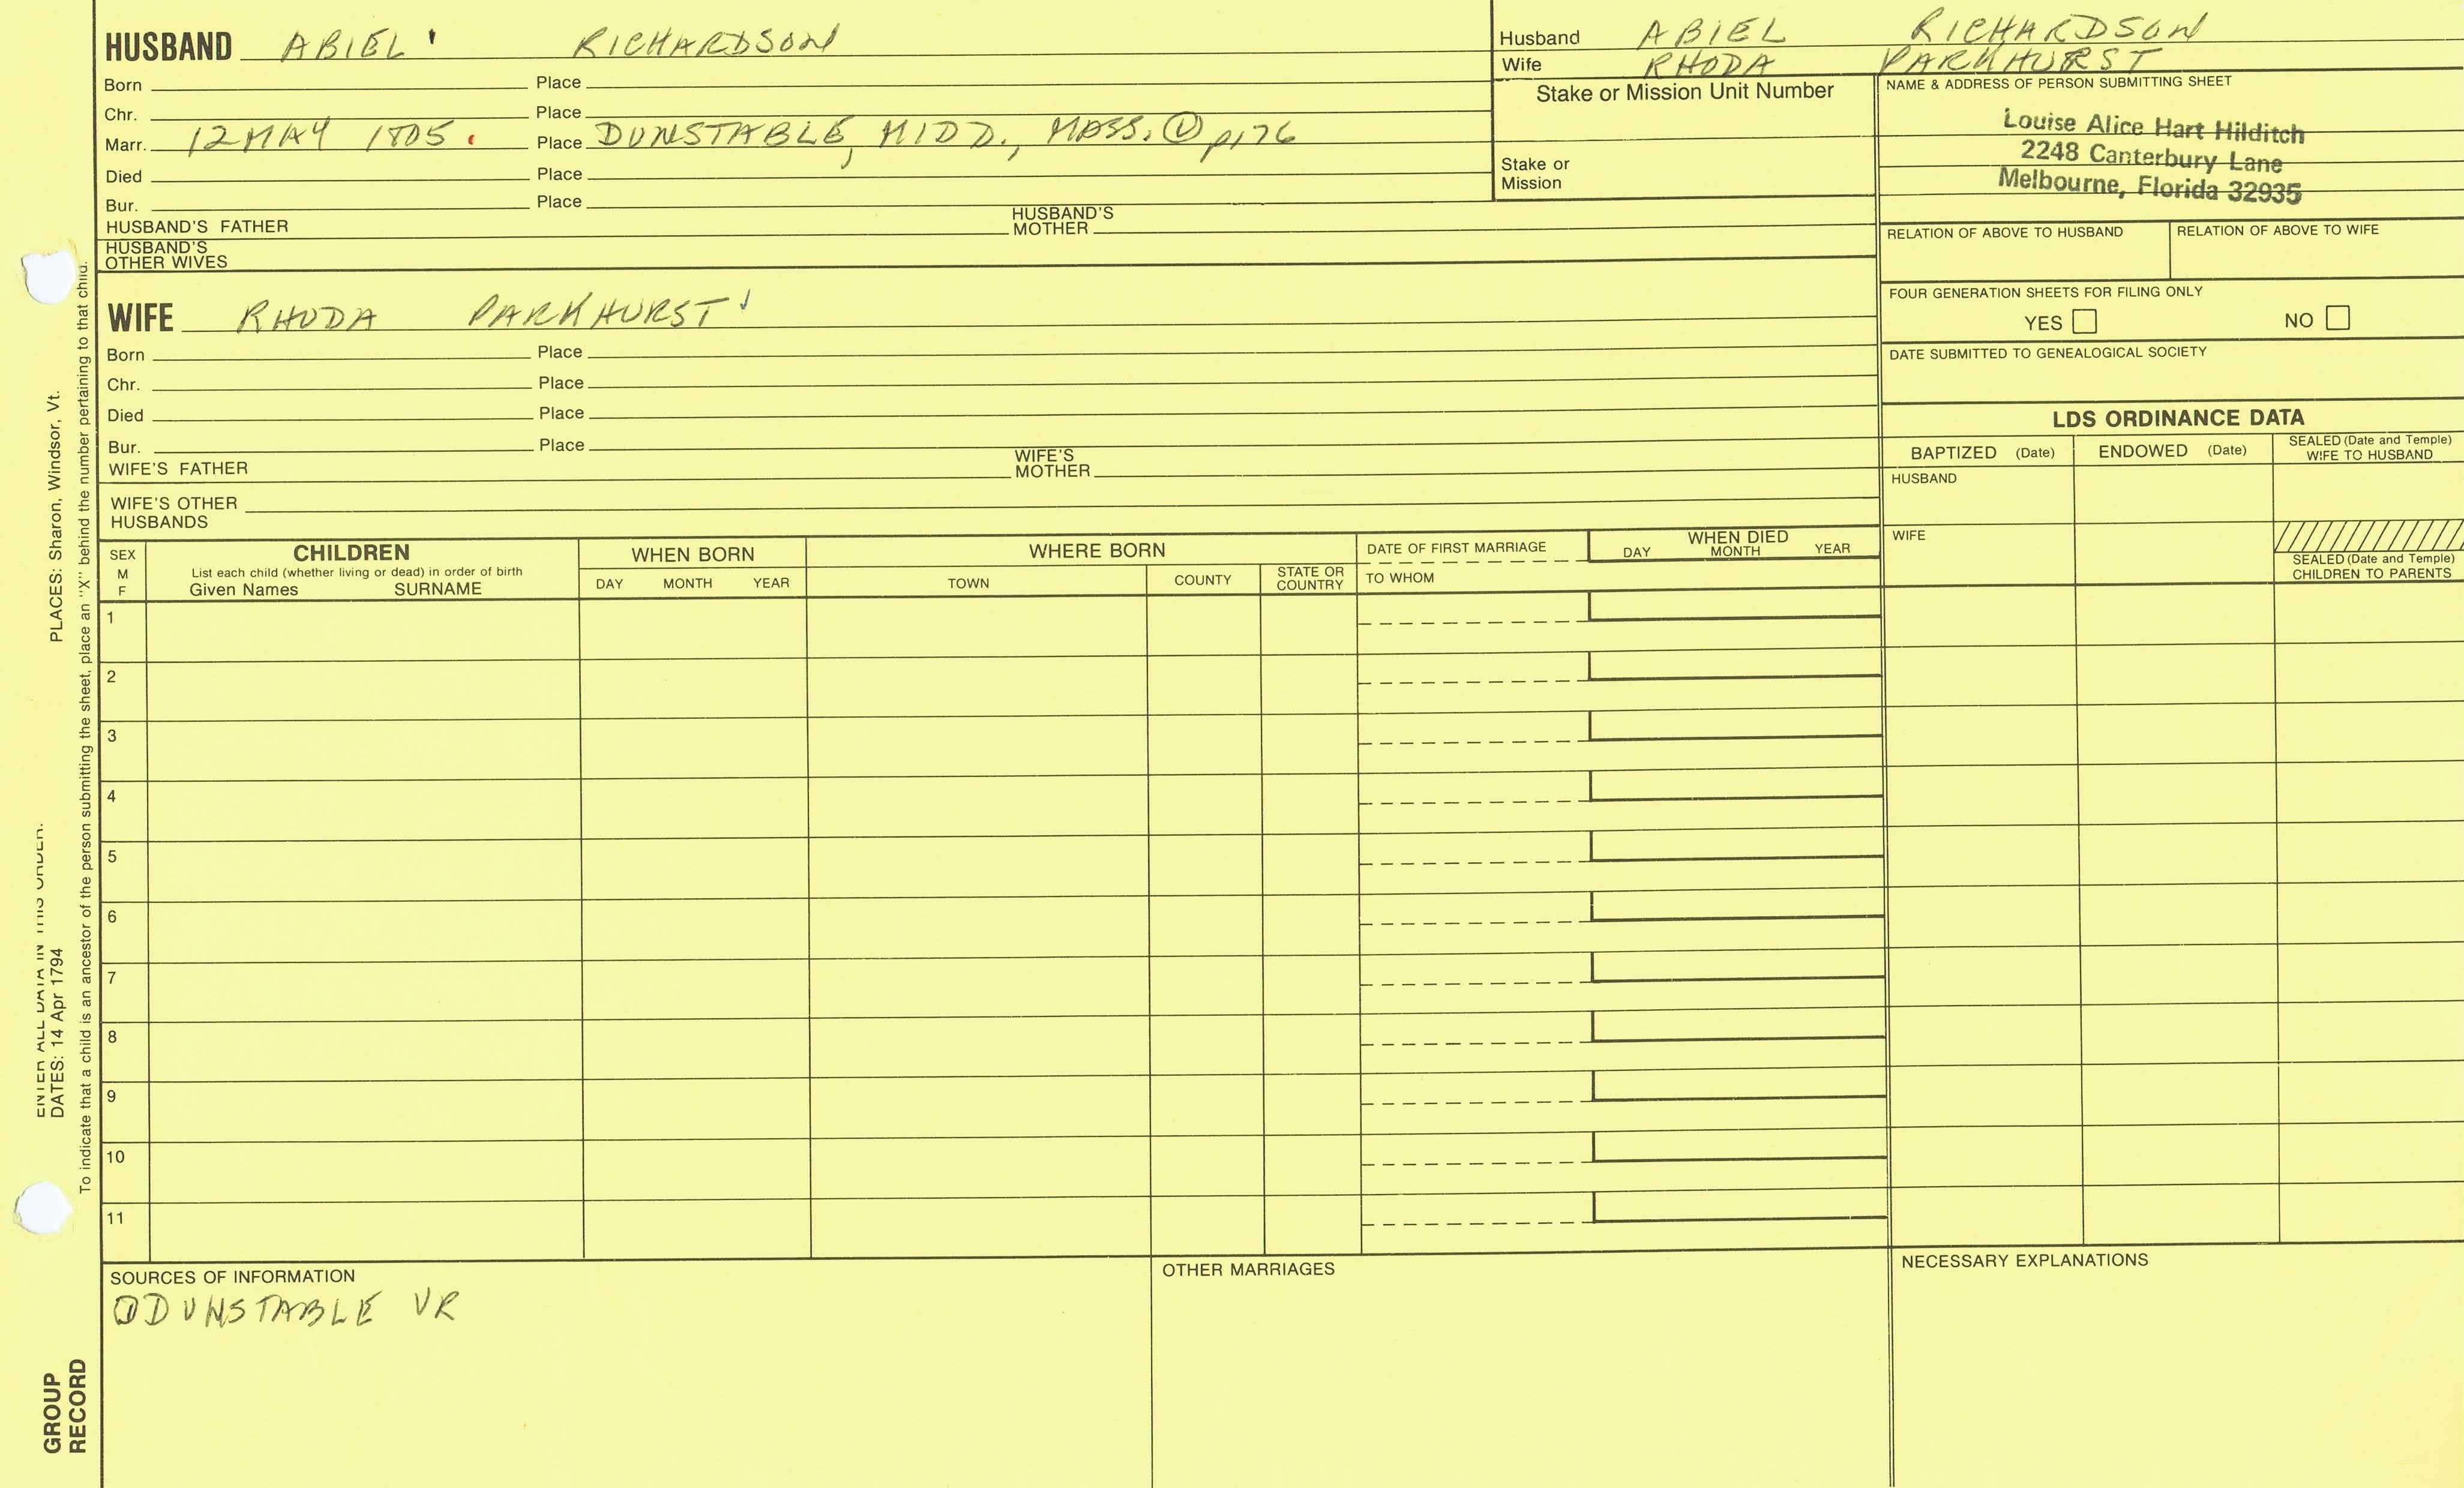 HUSBAND ABIEL RICHARDSON
Born Place
Chr. Place
Marr. 12 MAY 1805. Place DUNSTABLE, MIDD., MASS. ① p176
Died Place
Bur. Place
HUSBAND'S FATHER HUSBAND'S MOTHER
HUSBAND'S
OTHER WIVES
WIFE RHODA PARKHURST
Born Place
Chr. Place
Died Place
Bur. Place
WIFE'S FATHER WIFE'S MOTHER
WIFE'S OTHER
HUSBANDS
Husband ABIEL RICHARDSON
Wife RHODA PARKHURST
Stake or Mission Unit Number
Stake or
Mission
NAME & ADDRESS OF PERSON SUBMITTING SHEET
Louise Alice Hart Hilditch
2248 Canterbury Lane
Melbourne, Florida 32935
RELATION OF ABOVE TO HUSBAND RELATION OF ABOVE TO WIFE
FOUR GENERATION SHEETS FOR FILING ONLY
YES NO
DATE SUBMITTED TO GENEALOGICAL SOCIETY
LDS ORDINANCE DATA
BAPTIZED (Date) ENDOWED (Date) SEALED (Date and Temple)
WIFE TO HUSBAND
HUSBAND
WIFE
SEALED (Date and Temple)
CHILDREN TO PARENTS
SEX
M
F
CHILDREN
List each child (whether living or dead) in order of birth
Given Names SURNAME
WHEN BORN
DAY MONTH YEAR
WHERE BORN
TOWN COUNTY STATE OR COUNTRY
DATE OF FIRST MARRIAGE
TO WHOM
WHEN DIED
DAY MONTH YEAR
1
2
3
4
5
6
7
8
9
10
11
SOURCES OF INFORMATION
① DUNSTABLE VR
OTHER MARRIAGES
NECESSARY EXPLANATIONS
ENTER ALL DATA IN THIS ORDER.
DATES: 14 Apr 1794 PLACES: Sharon, Windsor, Vt.
To indicate that a child is an ancestor of the person submitting the sheet, place an "X" behind the number pertaining to that child.
GROUP
RECORD